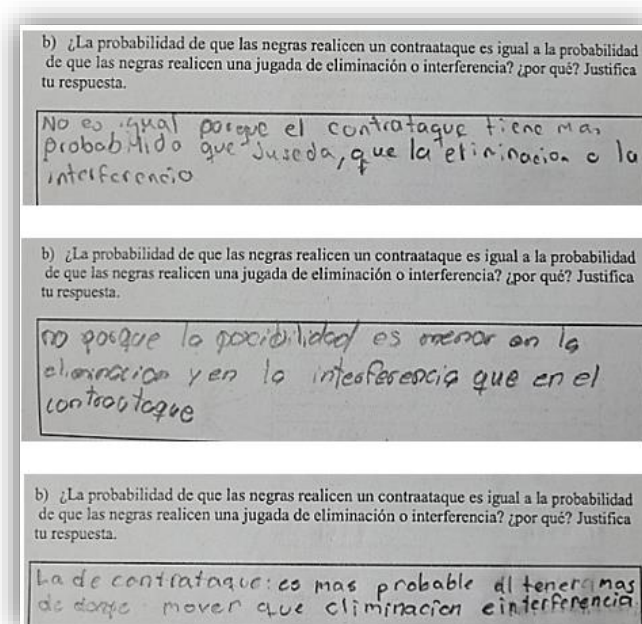 b) ¿La probabilidad de que las negras realicen un contraataque es igual a la probabilidad
de que las negras realicen una jugada de eliminación o interferencia? ¿por qué? Justifica
tu respuesta.
No es igual porque el contrataque tiene mas
probabilida que suseda, que la eliminacion o la
interferencia
b) ¿La probabilidad de que las negras realicen un contraataque es igual a la probabilidad
de que las negras realicen una jugada de eliminación o interferencia? ¿por qué? Justifica
tu respuesta.
no porque la pocibilidad es menor en la
eliminacion y en la interferencia que en el
contraataque
b) ¿La probabilidad de que las negras realicen un contraataque es igual a la probabilidad
de que las negras realicen una jugada de eliminación o interferencia? ¿por qué? Justifica
tu respuesta.
La de contrataque: es mas probable al tener mas
de donde mover que eliminacion e interferencia